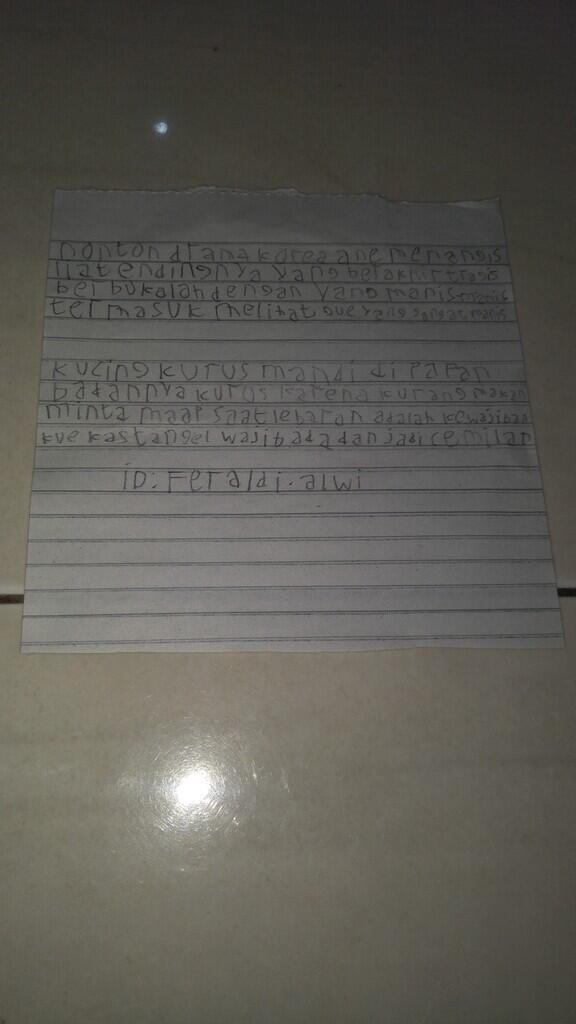 nonton drama korea ane menangis
liat endingnya yang berakhir tragis
berbukalah dengan yang manis-manis
termasuk melihat gue yang sangat manis
kucing kurus mandi di papan
badannya kurus karena kurang makan
minta maap saat lebaran adalah kewajiban
kue kastangel wajib ada dan jadi cemilan
iD: Feraldi.alwi